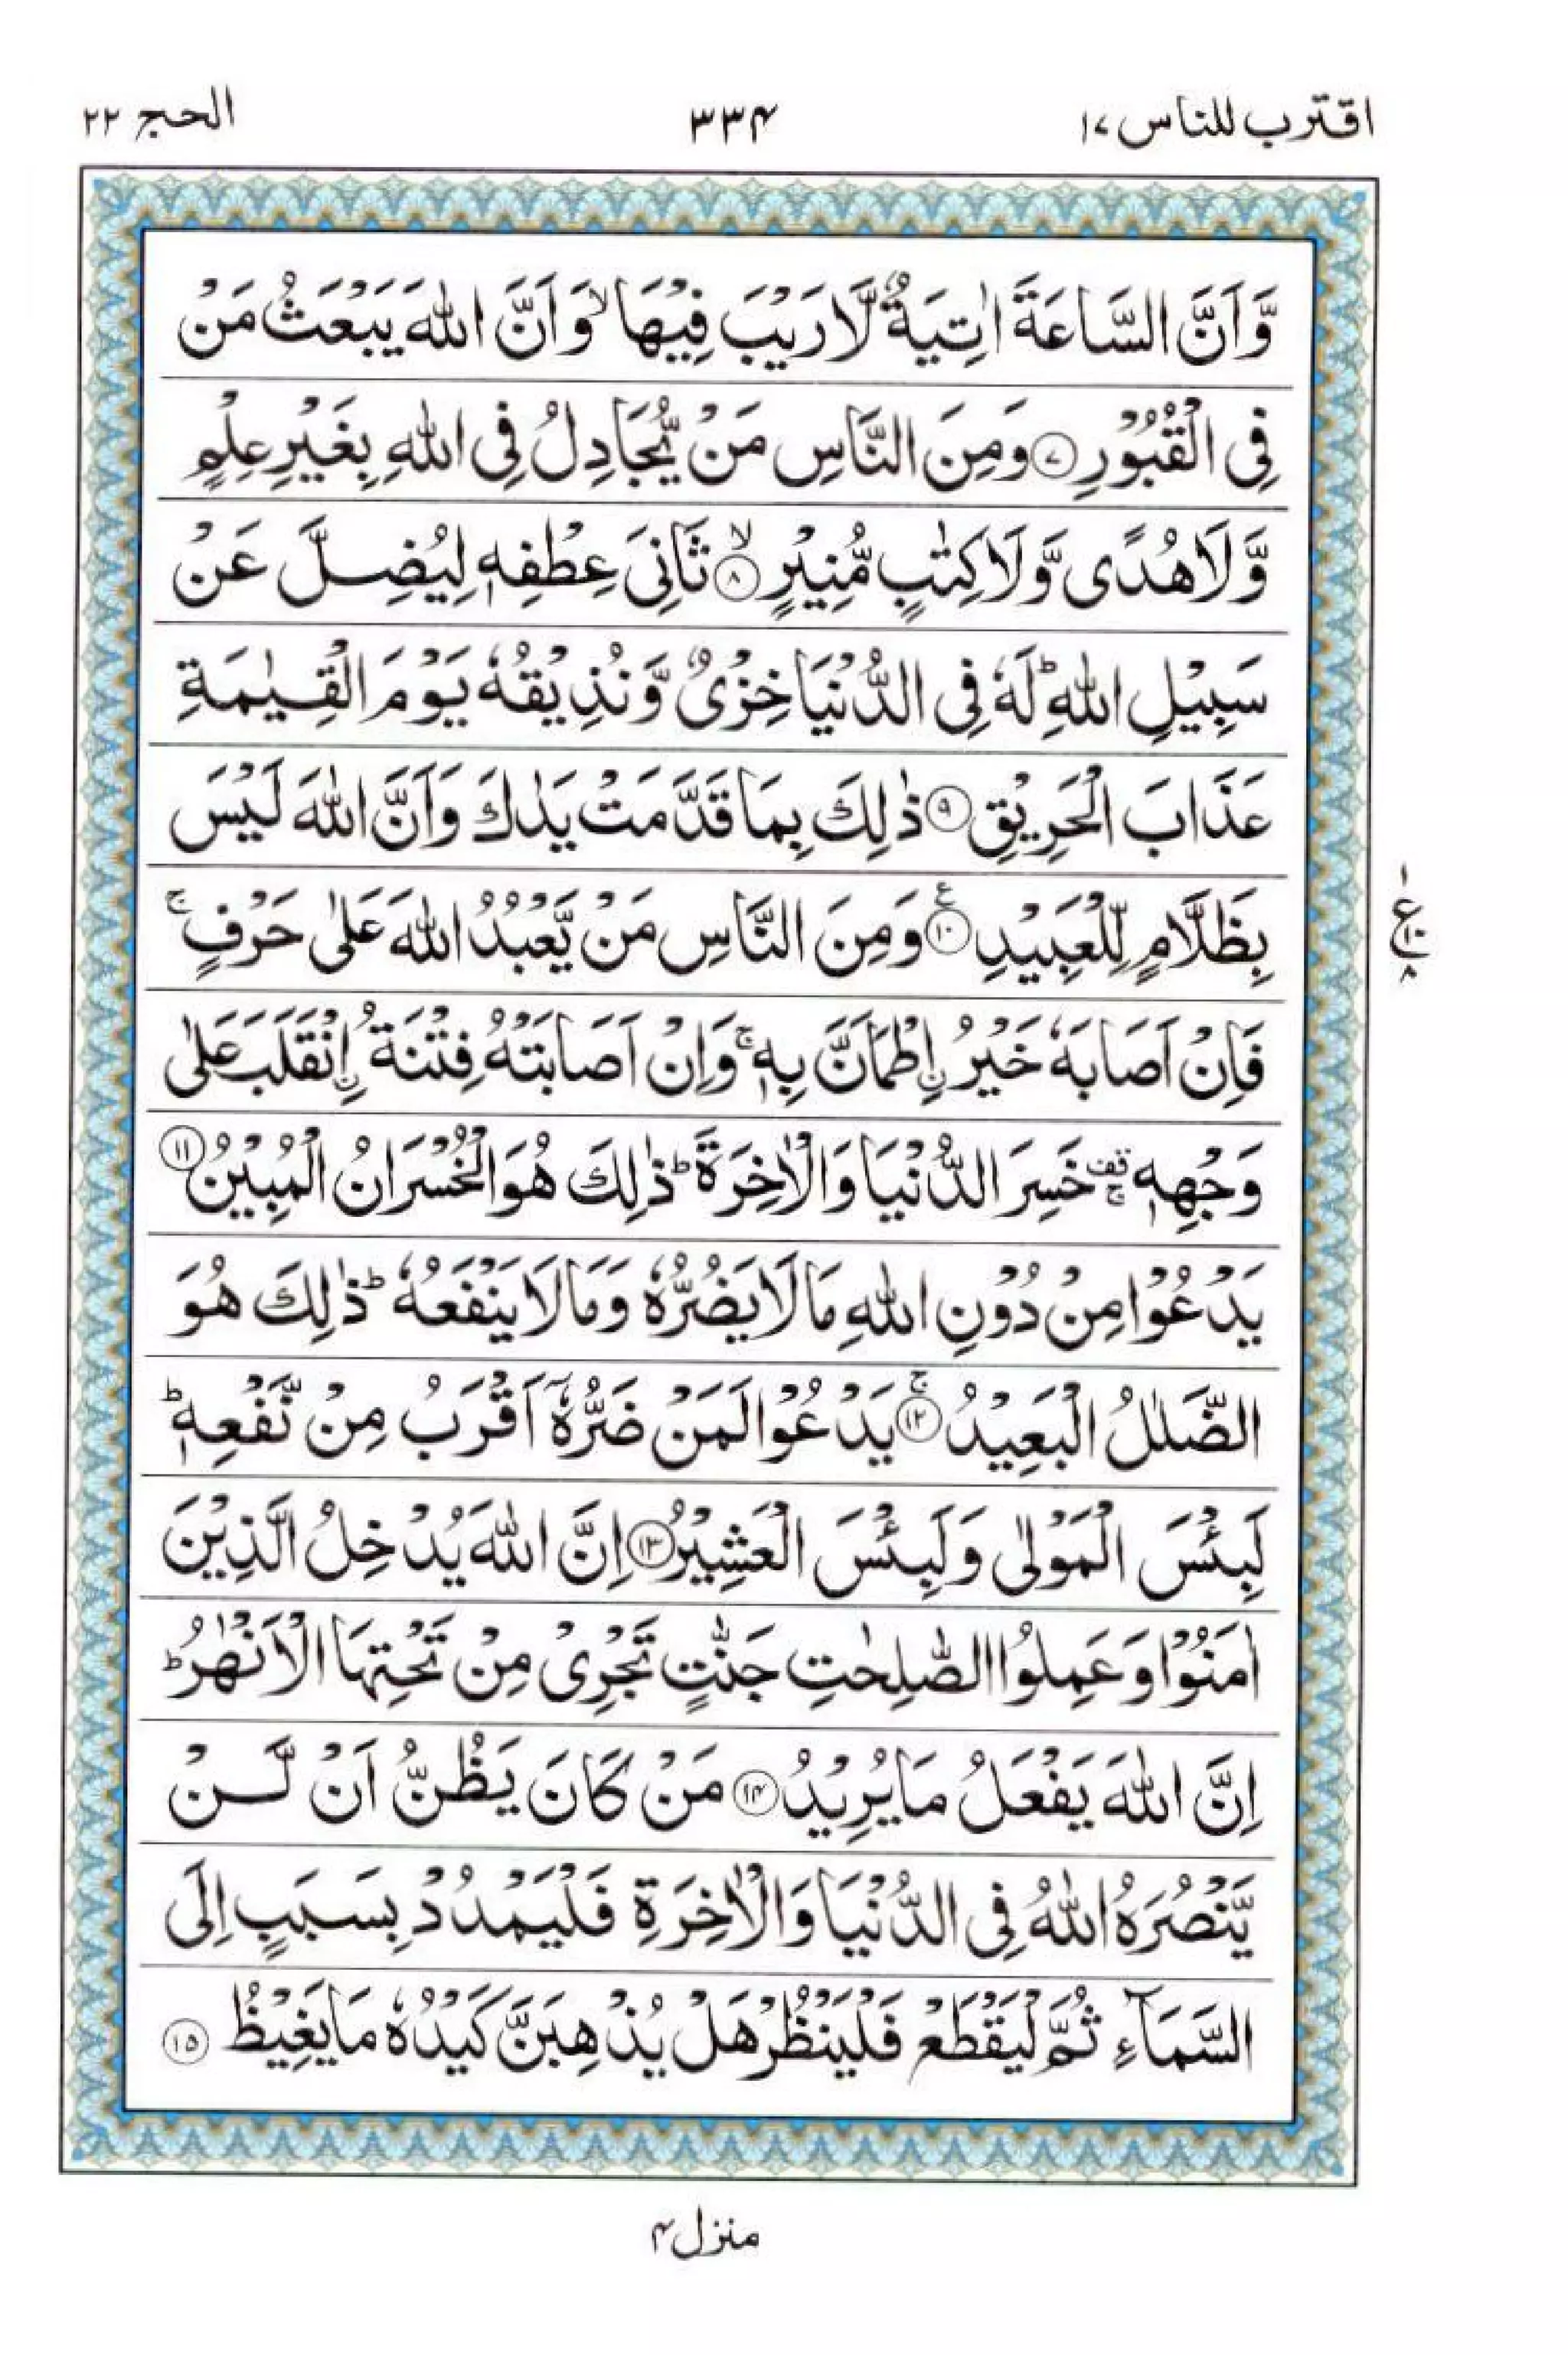 اقترب للناس ۱۷
۳۳۴
الحج ۲۲
وَّاَنَّ السَّاعَةَ اٰتِيَةٌ لَّا رَيْبَ فِيْهَا ۙ وَاَنَّ اللّٰهَ يَبْعَثُ مَنْ
فِي الْقُبُوْرِ ۷ وَمِنَ النَّاسِ مَنْ يُّجَادِلُ فِي اللّٰهِ بِغَيْرِ عِلْمٍ
وَّلَا هُدًى وَّلَا كِتٰبٍ مُّنِيْرٍ ۙ ۸ ثَانِيَ عِطْفِهٖ لِيُضِلَّ عَنْ
سَبِيْلِ اللّٰهِ ؕ لَهٗ فِي الدُّنْيَا خِزْيٌ وَّنُذِيْقُهٗ يَوْمَ الْقِيٰمَةِ
عَذَابَ الْحَرِيْقِ ۹ ذٰلِكَ بِمَا قَدَّمَتْ يَدٰكَ وَاَنَّ اللّٰهَ لَيْسَ
بِظَلَّامٍ لِّلْعَبِيْدِ ۱۰ ع وَمِنَ النَّاسِ مَنْ يَّعْبُدُ اللّٰهَ عَلٰى حَرْفٍ ۚ
۱ ع ۱۰ ۸
فَاِنْ اَصَابَهٗ خَيْرُ ۨاطْمَاَنَّ بِهٖ ۚ وَاِنْ اَصَابَتْهُ فِتْنَةُ ۨانْقَلَبَ عَلٰى
وَجْهِهٖ قف ۚ خَسِرَ الدُّنْيَا وَالْاٰخِرَةَ ؕ ذٰلِكَ هُوَ الْخُسْرَانُ الْمُبِيْنُ ۱۱
يَدْعُوْا مِنْ دُوْنِ اللّٰهِ مَا لَا يَضُرُّهٗ وَمَا لَا يَنْفَعُهٗ ؕ ذٰلِكَ هُوَ
الضَّلٰلُ الْبَعِيْدُ ۚ ۱۲ يَدْعُوْا لَمَنْ ضَرُّهٗۤ اَقْرَبُ مِنْ نَّفْعِهٖ ؕ
لَبِئْسَ الْمَوْلٰى وَلَبِئْسَ الْعَشِيْرُ ۱۳ اِنَّ اللّٰهَ يُدْخِلُ الَّذِيْنَ
اٰمَنُوْا وَعَمِلُوا الصّٰلِحٰتِ جَنّٰتٍ تَجْرِيْ مِنْ تَحْتِهَا الْاَنْهٰرُ ؕ
اِنَّ اللّٰهَ يَفْعَلُ مَا يُرِيْدُ ۱۴ مَنْ كَانَ يَظُنُّ اَنْ لَّنْ
يَّنْصُرَهُ اللّٰهُ فِي الدُّنْيَا وَالْاٰخِرَةِ فَلْيَمْدُدْ بِسَبَبٍ اِلَى
السَّمَآءِ ثُمَّ لْيَقْطَعْ فَلْيَنْظُرْ هَلْ يُذْهِبَنَّ كَيْدُهٗ مَا يَغِيْظُ ۱۵
منزل ۴